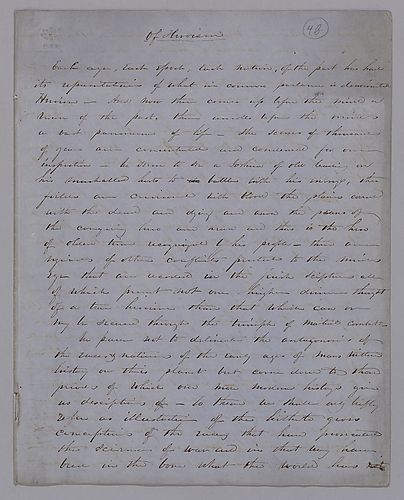 Of Heroism
46
Each age, each epoch, each nation, of the past has had
its representations of what in common parlance is denominated
Heroism — And now there comes up before the mind a
view of the past, there unrolls before the mind's
a vast panorama of life — the scenes of thousands
of years are concentrated and condensed for our
inspection — he seem to see a Joshua of old leading
his marshalled hosts to battles with his enemy, the
fields are crimsoned with blood the plains covered
with the dead and dying and anon the paens of
the conquering hero are and this is the hero
of olden time recognized by his people — there are
of other conflicts presented to the mind's
Eye that are recorded in the Jewish Scriptures all
of which present not one high divine thought
of a true heroism other than that which can or
may be secured through the triumph of martial combat.
We pause not to delineate the antagonisms of
the races & nations of the early ages of mans written
history on this planet but come down to those
periods of which our more modern history gives
us descriptions of — to these we shall only briefly
as illustrations of the historic given
conceptions of the that have
the of war and in that may have
been in the bone what the world has